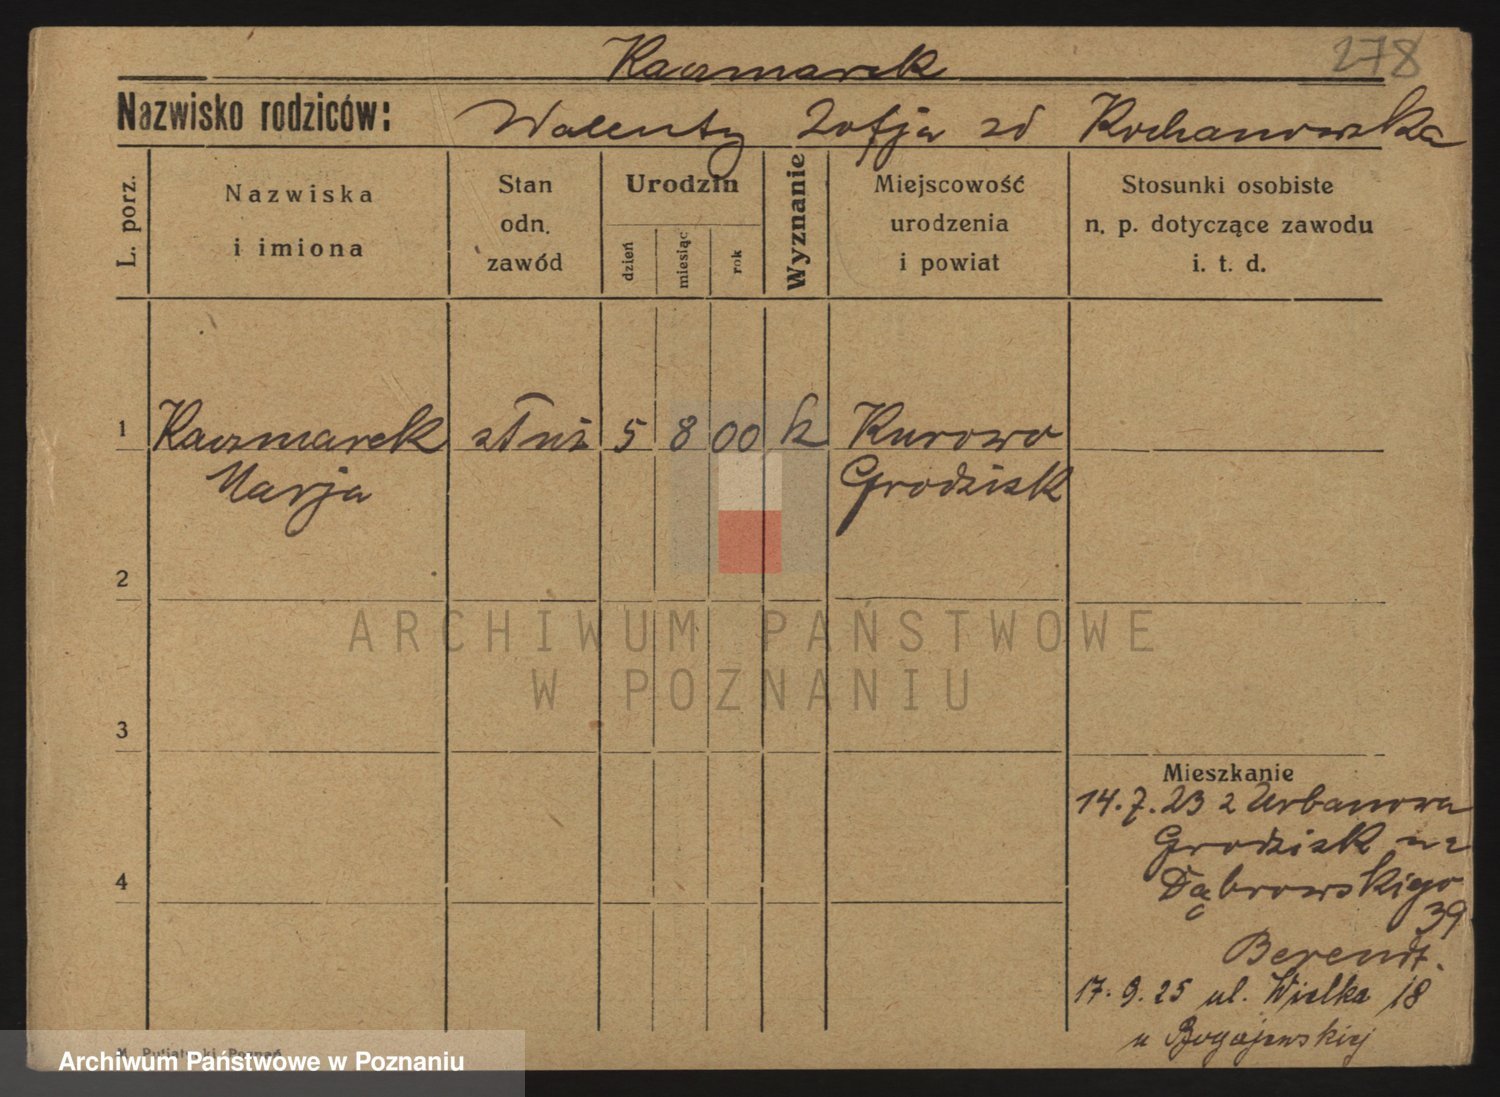 Kaczmarek 278
Nazwisko rodziców: Walenty Zofja zd Kochanowska
L. porz.
Nazwiska i imiona
Stan odn. zawód
Urodzin
dzień miesiąc rok
Wyznanie
Miejscowość urodzenia i powiat
Stosunki osobiste n. p. dotyczące zawodu i. t. d.
1 Kaczmarek służ 5 8 00 k Kurowo
Marja Grodzisk
2
ARCHIWUM PAŃSTWOWE
W POZNANIU
3
Mieszkanie
14.7.23 z Urbanowa
Grodzisk na
4 Dąbrowskigo
39
Berendt.
17.9.25 ul. Wielka 18
u Bogajewskiej
Archiwum Państwowe w Poznaniu